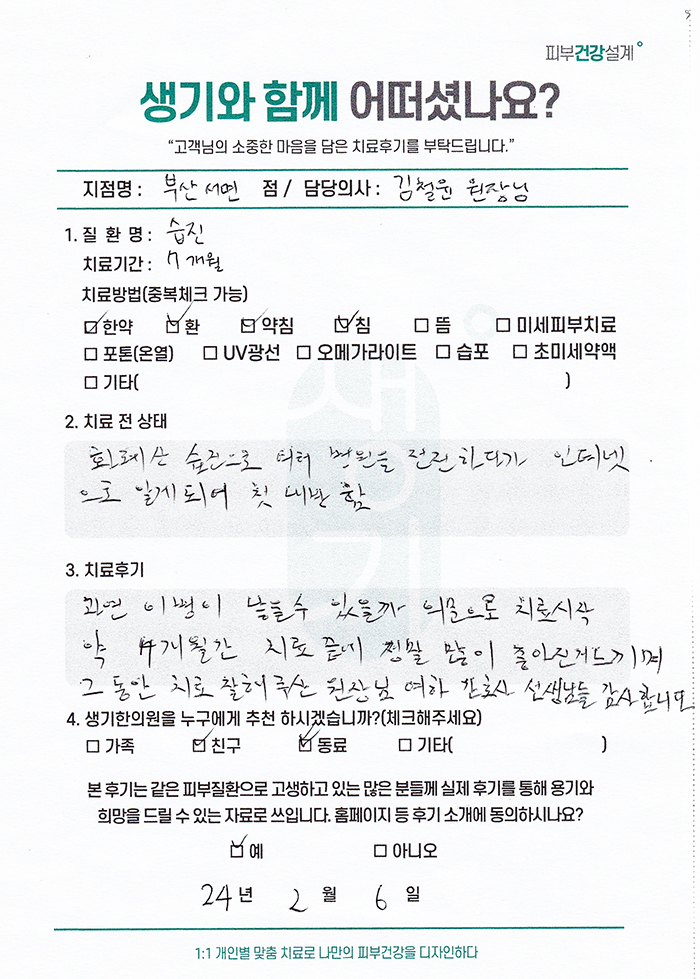 5
피부건강설계
생기와 함께 어떠셨나요?
"고객님의 소중한 마음을 담은 치료후기를 부탁드립니다."
지점명 : 부산 서면 점 / 담당의사 : 김철윤 원장님
1. 질 환 명 : 습진
치료기간 : 7개월
치료방법(중복체크 가능)
☑ 한약 ☑ 환 ☑ 약침 ☑ 침 ☐ 뜸 ☐ 미세피부치료
☐ 포톤(온열) ☐ UV광선 ☐ 오메가라이트 ☐ 습포 ☐ 초미세약액
☐ 기타( )
2. 치료 전 상태
화폐상 습진으로 여러 병원을 전전하다가 인터넷
으로 알게되어 첫 내반 함
3. 치료후기
과연 이병이 낳을수 있을까 의문으로 치료시작
약 7개월간 치료 끝에 정말 많이 좋아진거느끼며
그동안 치료 잘해주신 원장님 여하 간호사 선생님들 감사합니다
4. 생기한의원을 누구에게 추천 하시겠습니까?(체크해주세요)
☐ 가족 ☑ 친구 ☑ 동료 ☐ 기타( )
본 후기는 같은 피부질환으로 고생하고 있는 많은 분들께 실제 후기를 통해 용기와
희망을 드릴 수 있는 자료로 쓰입니다. 홈페이지 등 후기 소개에 동의하시나요?
☑ 예 ☐ 아니오
24년 2월 6일
1:1 개인별 맞춤 치료로 나만의 피부건강을 디자인하다
생기